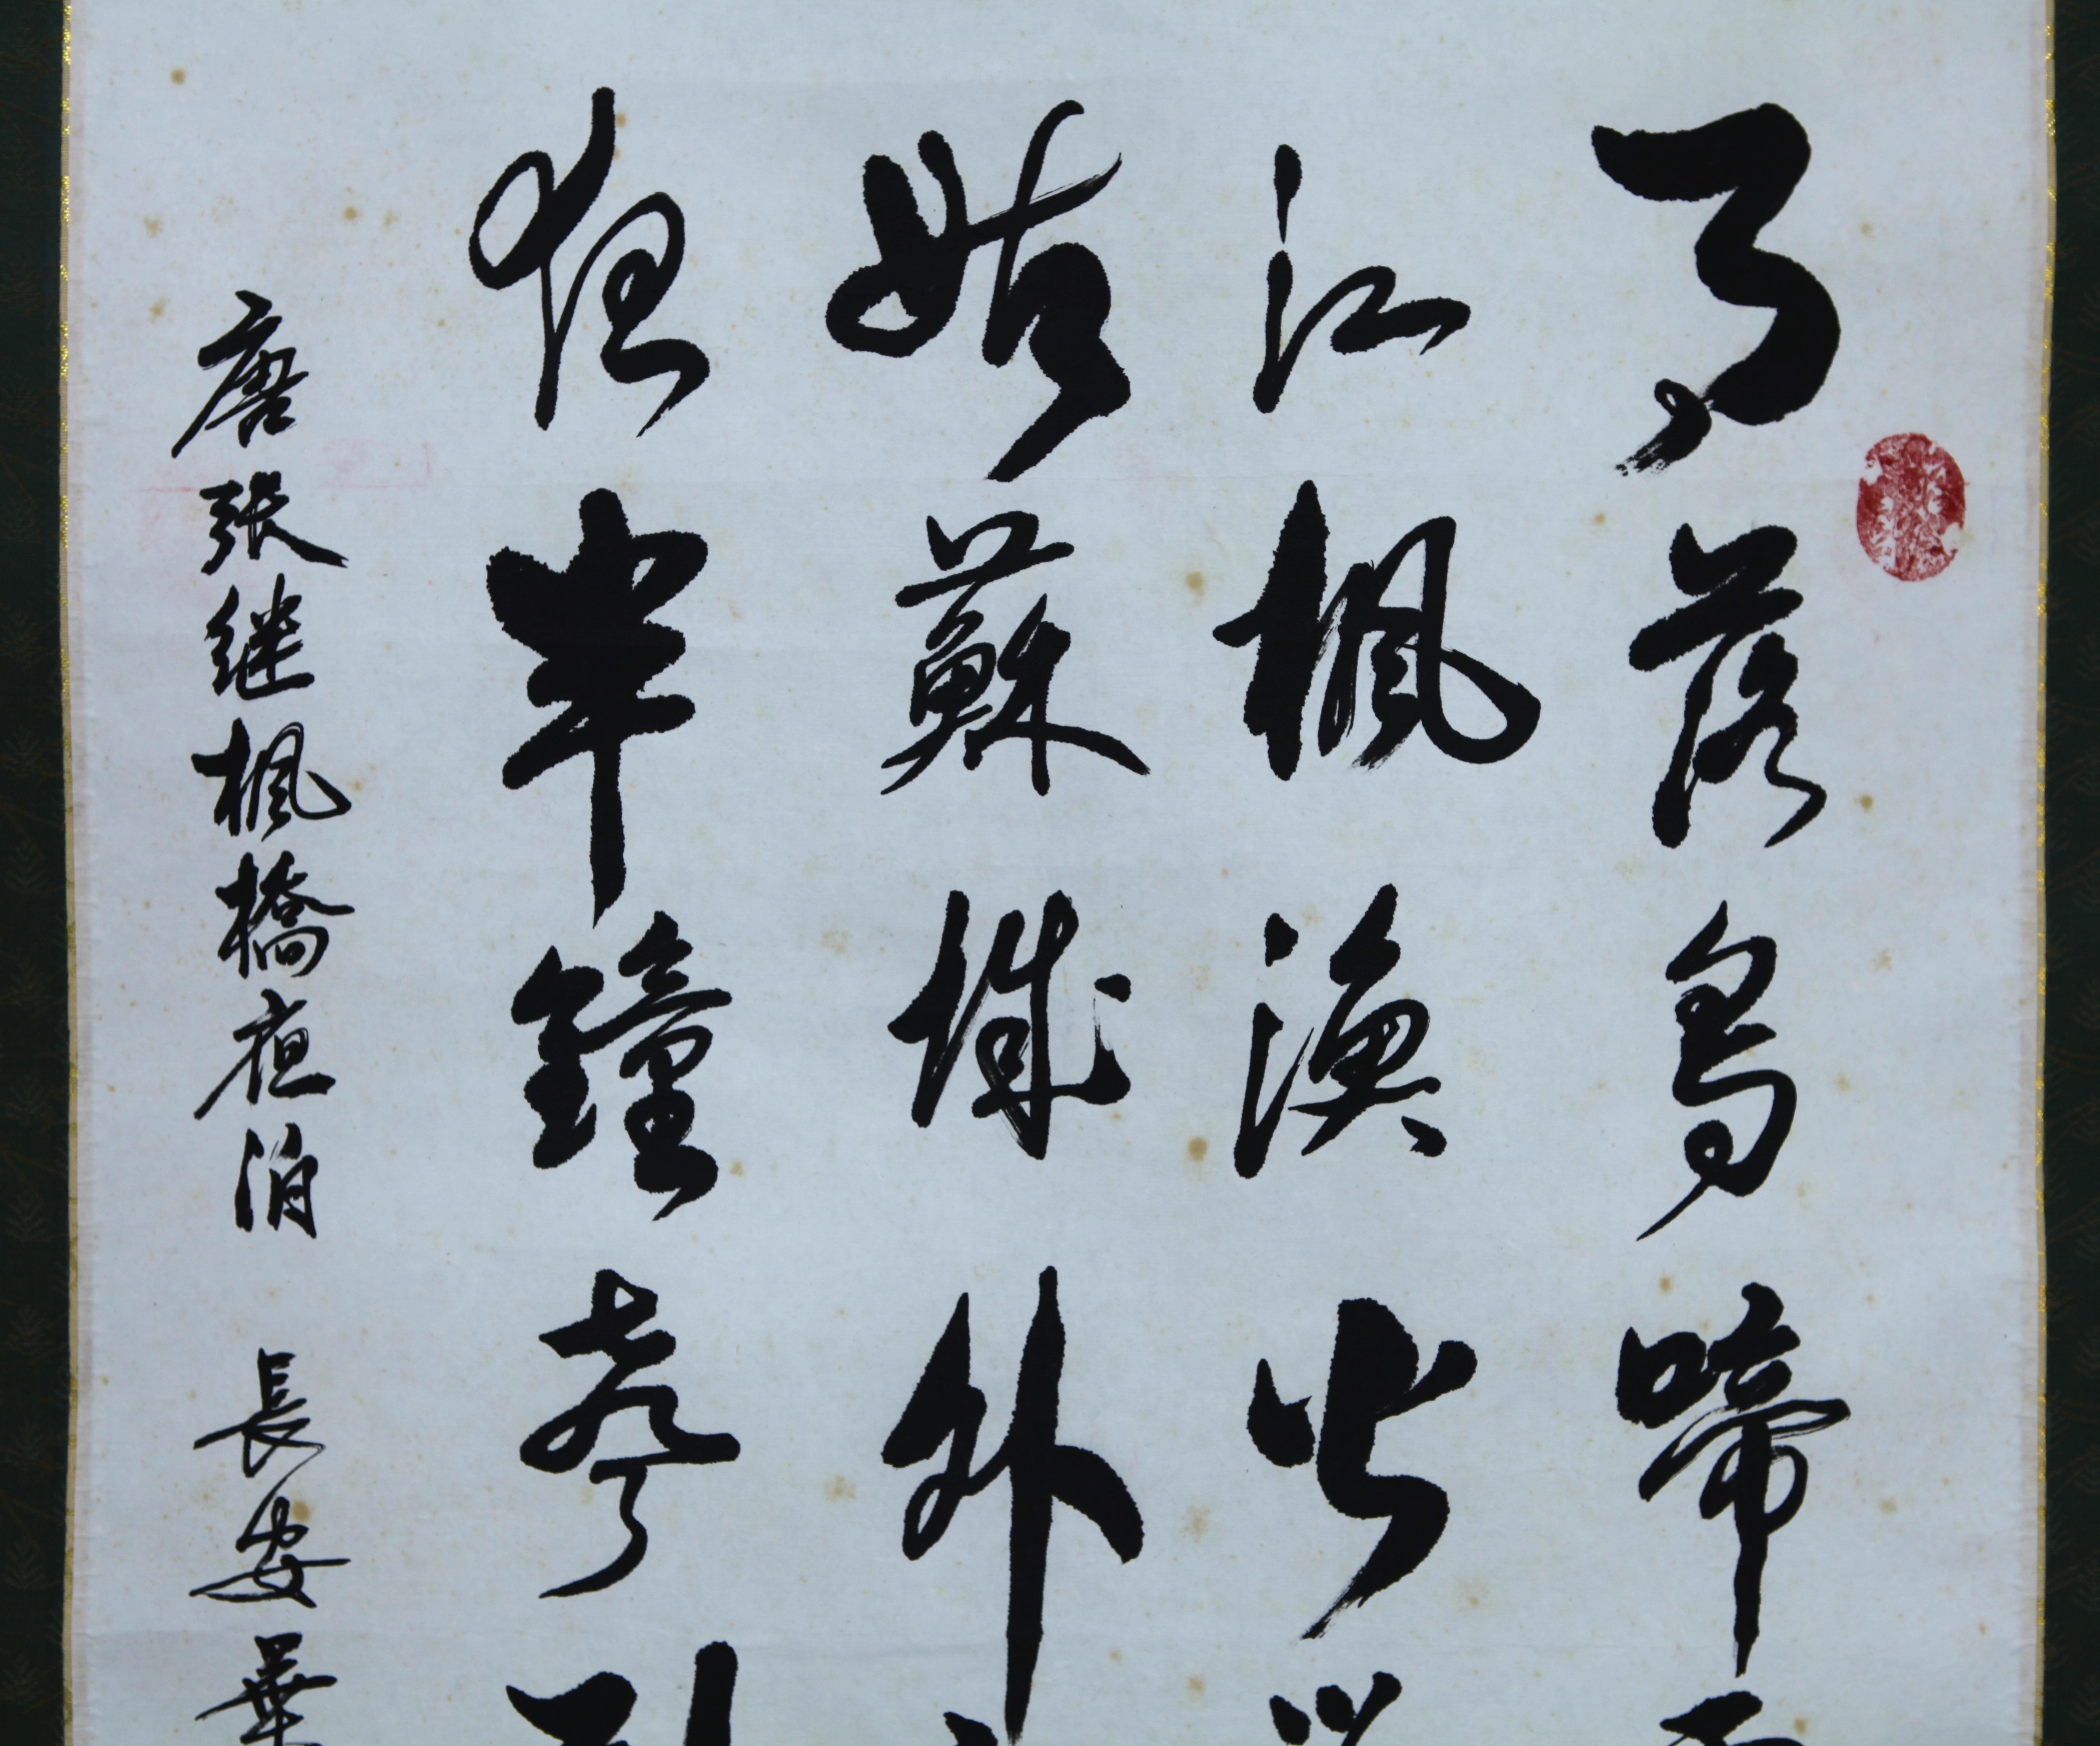 月落烏啼
江楓漁火
姑蘇城外
夜半鐘聲到
唐張继楓橋夜泊 長安